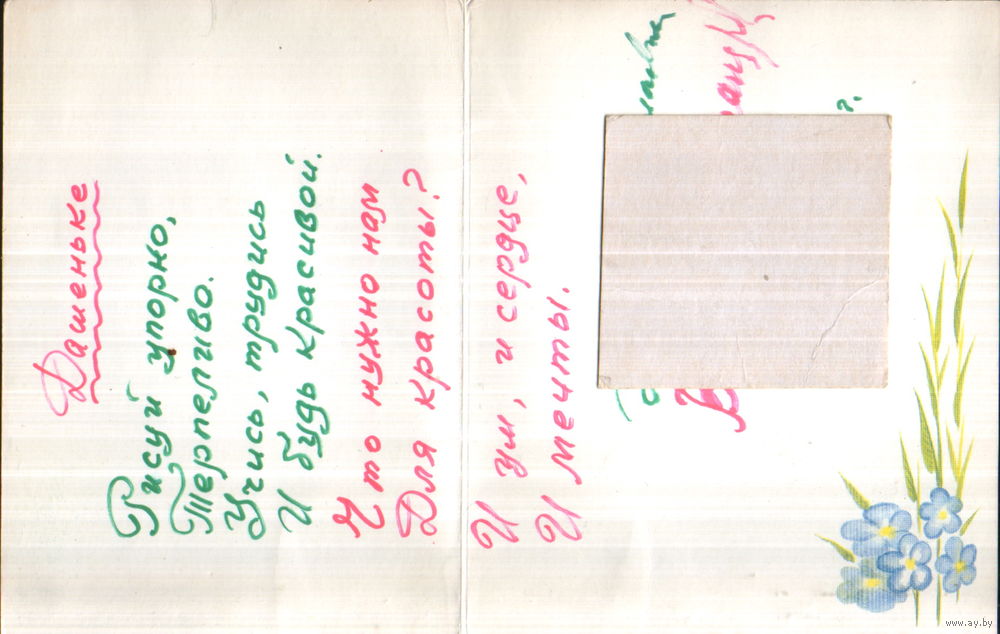 Дашеньке
Рисуй упорно,
Терпеливо.
Учись, трудись
И будь красивой.
Что нужно нам
Для красоты?
И ум, и сердце,
И мечты.
www.ay.by